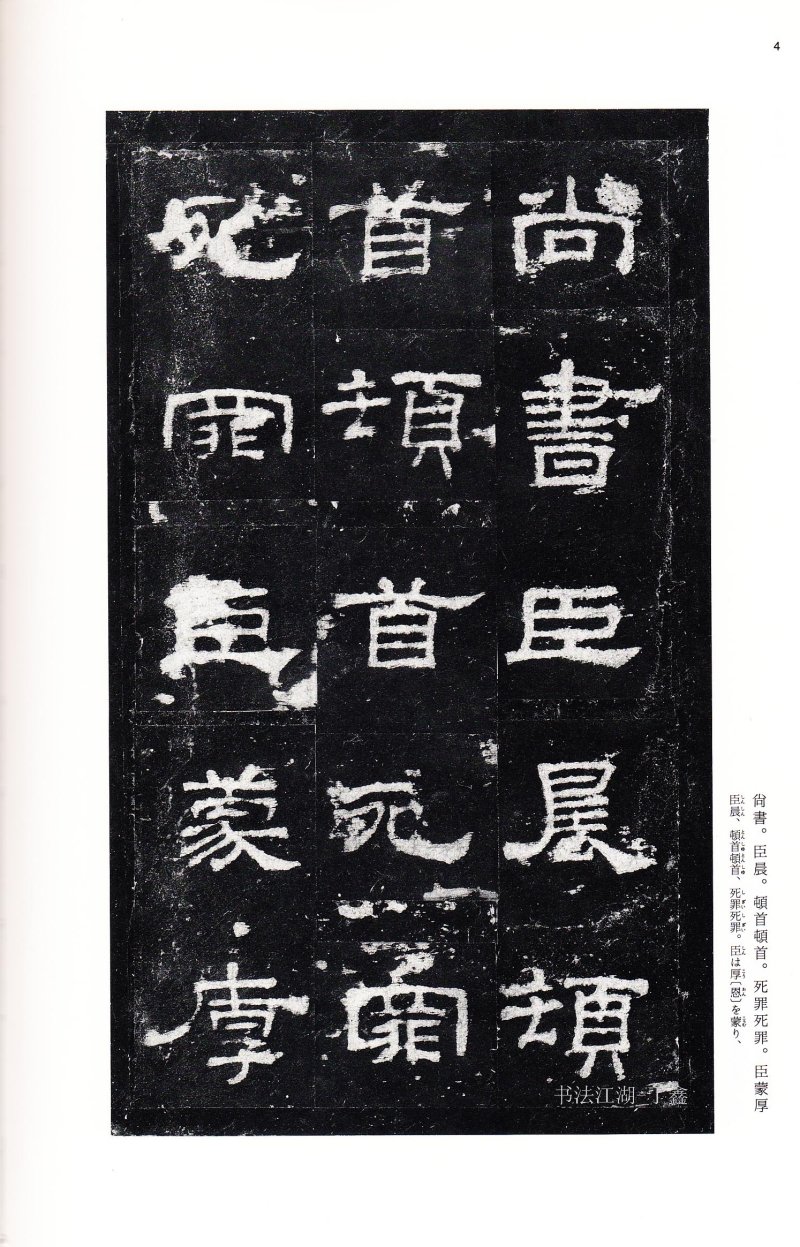 4
尚書臣晨頓
首頓首死罪
死罪臣蒙厚
尙書。臣晨。頓首頓首。死罪死罪。臣蒙厚
臣晨、頓首頓首、死罪死罪。臣は厚〔恩〕を蒙り、
书法江湖_丁鑫